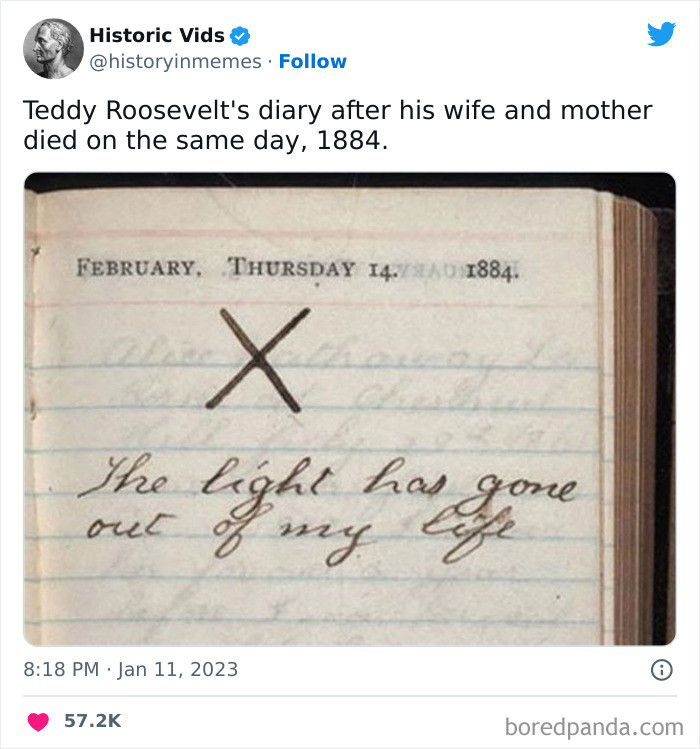 Historic Vids
@historyinmemes · Follow
Teddy Roosevelt's diary after his wife and mother
died on the same day, 1884.
FEBRUARY, THURSDAY 14. 1884.
X
The light has gone
out of my life
8:18 PM · Jan 11, 2023
57.2K
boredpanda.com